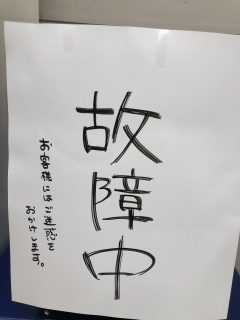 故障中
お客様にはご迷惑を
おかけします。